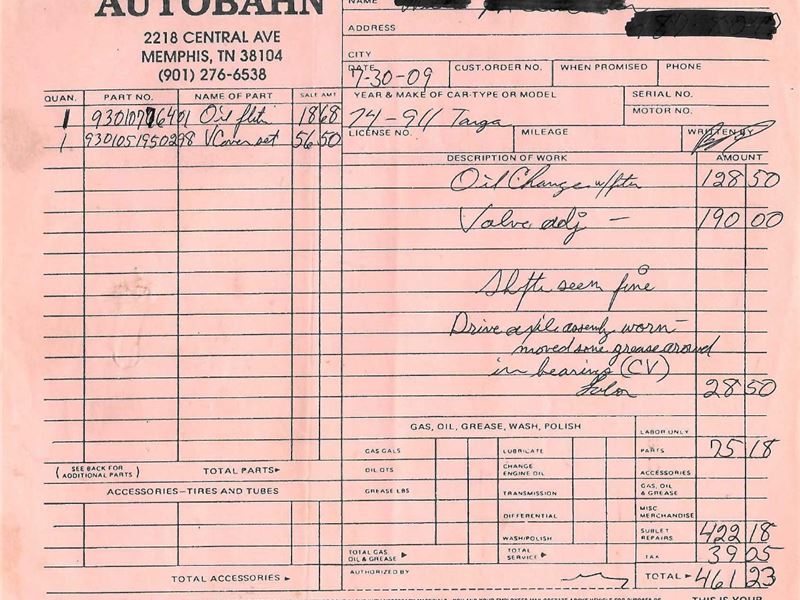 AUTOBAHN
2218 CENTRAL AVE
MEMPHIS, TN 38104
(901) 276-6538
NAME
ADDRESS
CITY
DATE 7-30-09 CUST. ORDER NO. WHEN PROMISED PHONE
QUAN. PART NO. NAME OF PART SALE AMT
1 93010776401 Oil filtr 18 68
1 9301051950298 V Cover set 56 50
YEAR & MAKE OF CAR-TYPE OR MODEL
74-911 Targa
SERIAL NO.
MOTOR NO.
LICENSE NO. MILEAGE WRITTEN BY
DESCRIPTION OF WORK AMOUNT
Oil Change w/fltr 128 50
Valve adj – 190 00
seem fine
Drive axle assembly worn
moved some grease around
in bearing (CV)
28 50
GAS, OIL, GREASE, WASH, POLISH
LABOR ONLY
GAS GALS LUBRICATE PARTS 75 18
OIL QTS CHANGE ENGINE OIL ACCESSORIES
GREASE LBS TRANSMISSION GAS, OIL & GREASE
DIFFERENTIAL MISC MERCHANDISE
WASH/POLISH SUBLET REPAIRS 422 18
TOTAL GAS OIL & GREASE TOTAL SERVICE TAX 39 05
AUTHORIZED BY TOTAL 461 23
(SEE BACK FOR ADDITIONAL PARTS) TOTAL PARTS
ACCESSORIES—TIRES AND TUBES
TOTAL ACCESSORIES
THIS IS YOUR